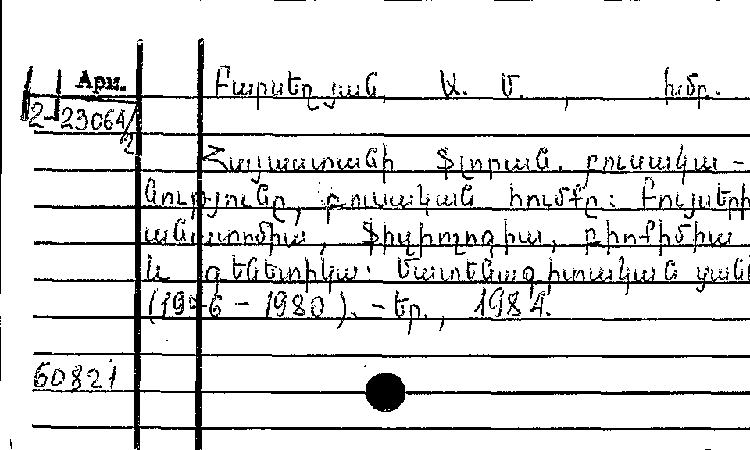 Арм.
Բարսեղյան Ա. Մ., խմբ.
2-23064/2
Հայաստանի ֆլորան. բուսակա-
նությունը, բուսական հումքը: Բույսերի
անատոմիա, ֆիզիոլոգիա, բիոքիմիա
և գենետիկա: Մատենագիտական ցանկ
(1976 - 1980). - Եր., 1984.
60821